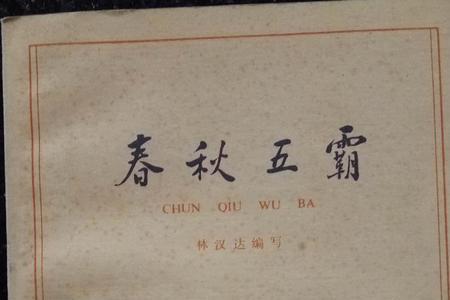 春秋五霸
CHUN QIU WU BA
林汉达编写